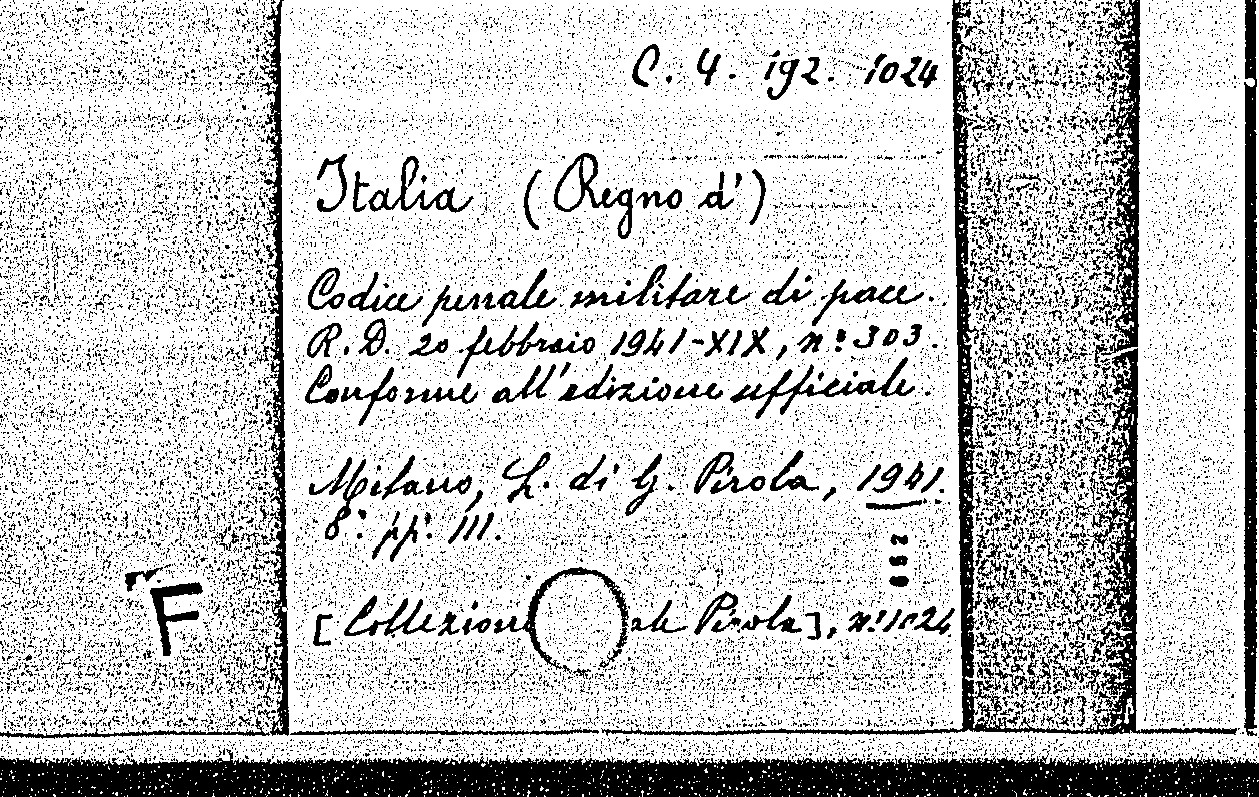 C. 4. 192. 1024
Italia (Regno d')
Codice penale militare di pace.
R. D. 20 febbraio 1941-XIX, n.º 303.
Conforme all'edizione ufficiale.
Milano, L. di G. Pirola, 1941.
8.º pp. 111.
[Collezione ale Pirola], n.º 1024
F